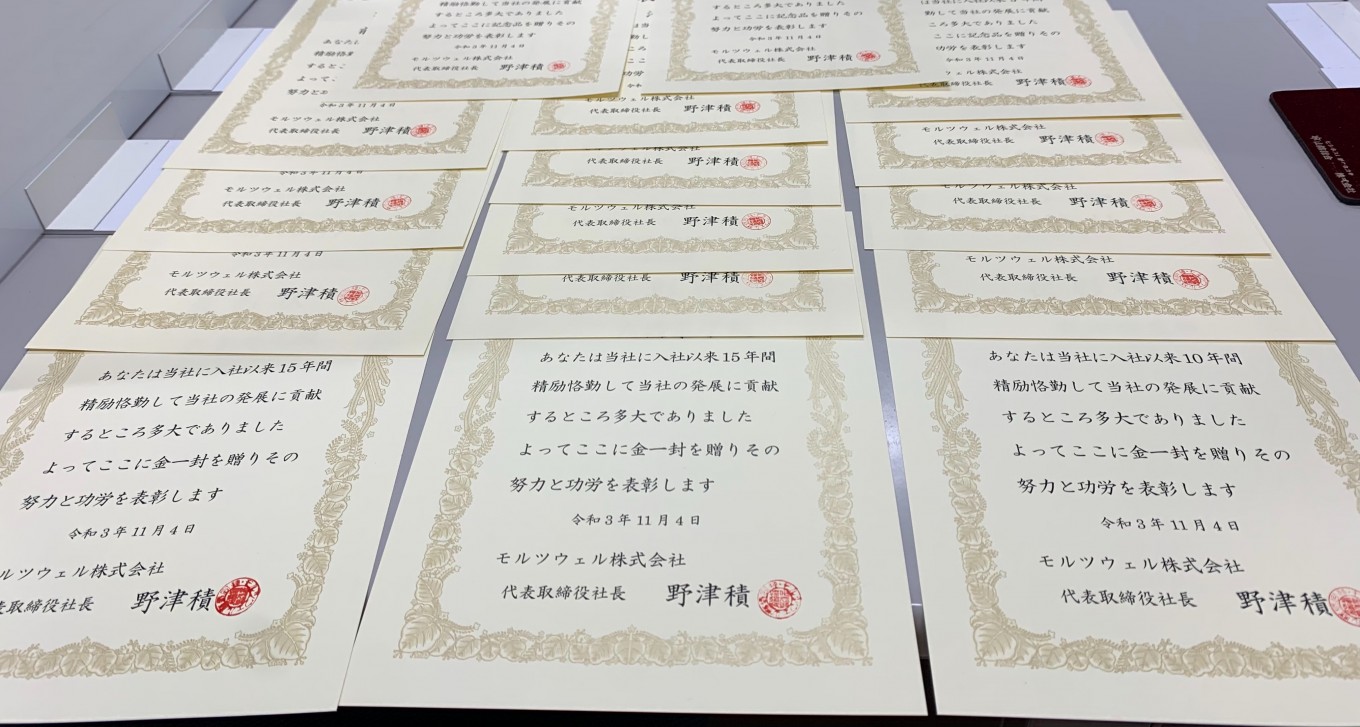 精励恪勤して当社の発展に貢献
するところ多大でありました
よってここに記念品を贈りその
努力と功労を表彰します
令和3年11月4日
モルツウェル株式会社
代表取締役社長 野津積
するところ多大でありました
よってここに記念品を贈りその
努力と功労を表彰します
令和3年11月4日
モルツウェル株式会社
代表取締役社長 野津積
励して当社の発展に貢献
ころ多大でありました
ここに記念品を贈りその
功労を表彰します
3年11月4日
ウェル株式会社
代表取締役社長 野津積
あなた
精励恪
すると
よって
努力と
令和3年11月4日
モルツウェル株式会社
代表取締役社長 野津積
モルツウェル株式会社
代表取締役社長 野津積
モルツウェル株式会社
代表取締役社長 野津積
モルツウェル株式会社
代表取締役社長 野津積
令和3年11月4日
モルツウェル株式会社
代表取締役社長 野津積
モルツウェル株式会社
代表取締役社長 野津積
モルツウェル株式会社
代表取締役社長 野津積
令和3年11月4日
モルツウェル株式会社
代表取締役社長 野津積
代表取締役社長 野津積
モルツウェル株式会社
代表取締役社長 野津積
あなたは当社に入社以来15年間
精励恪勤して当社の発展に貢献
するところ多大でありました
よってここに金一封を贈りその
努力と功労を表彰します
令和3年11月4日
ルツウェル株式会社
表取締役社長 野津積
あなたは当社に入社以来15年間
精励恪勤して当社の発展に貢献
するところ多大でありました
よってここに金一封を贈りその
努力と功労を表彰します
令和3年11月4日
モルツウェル株式会社
代表取締役社長 野津積
あなたは当社に入社以来10年間
精励恪勤して当社の発展に貢献
するところ多大でありました
よってここに金一封を贈りその
努力と功労を表彰します
令和3年11月4日
モルツウェル株式会社
代表取締役社長 野津積